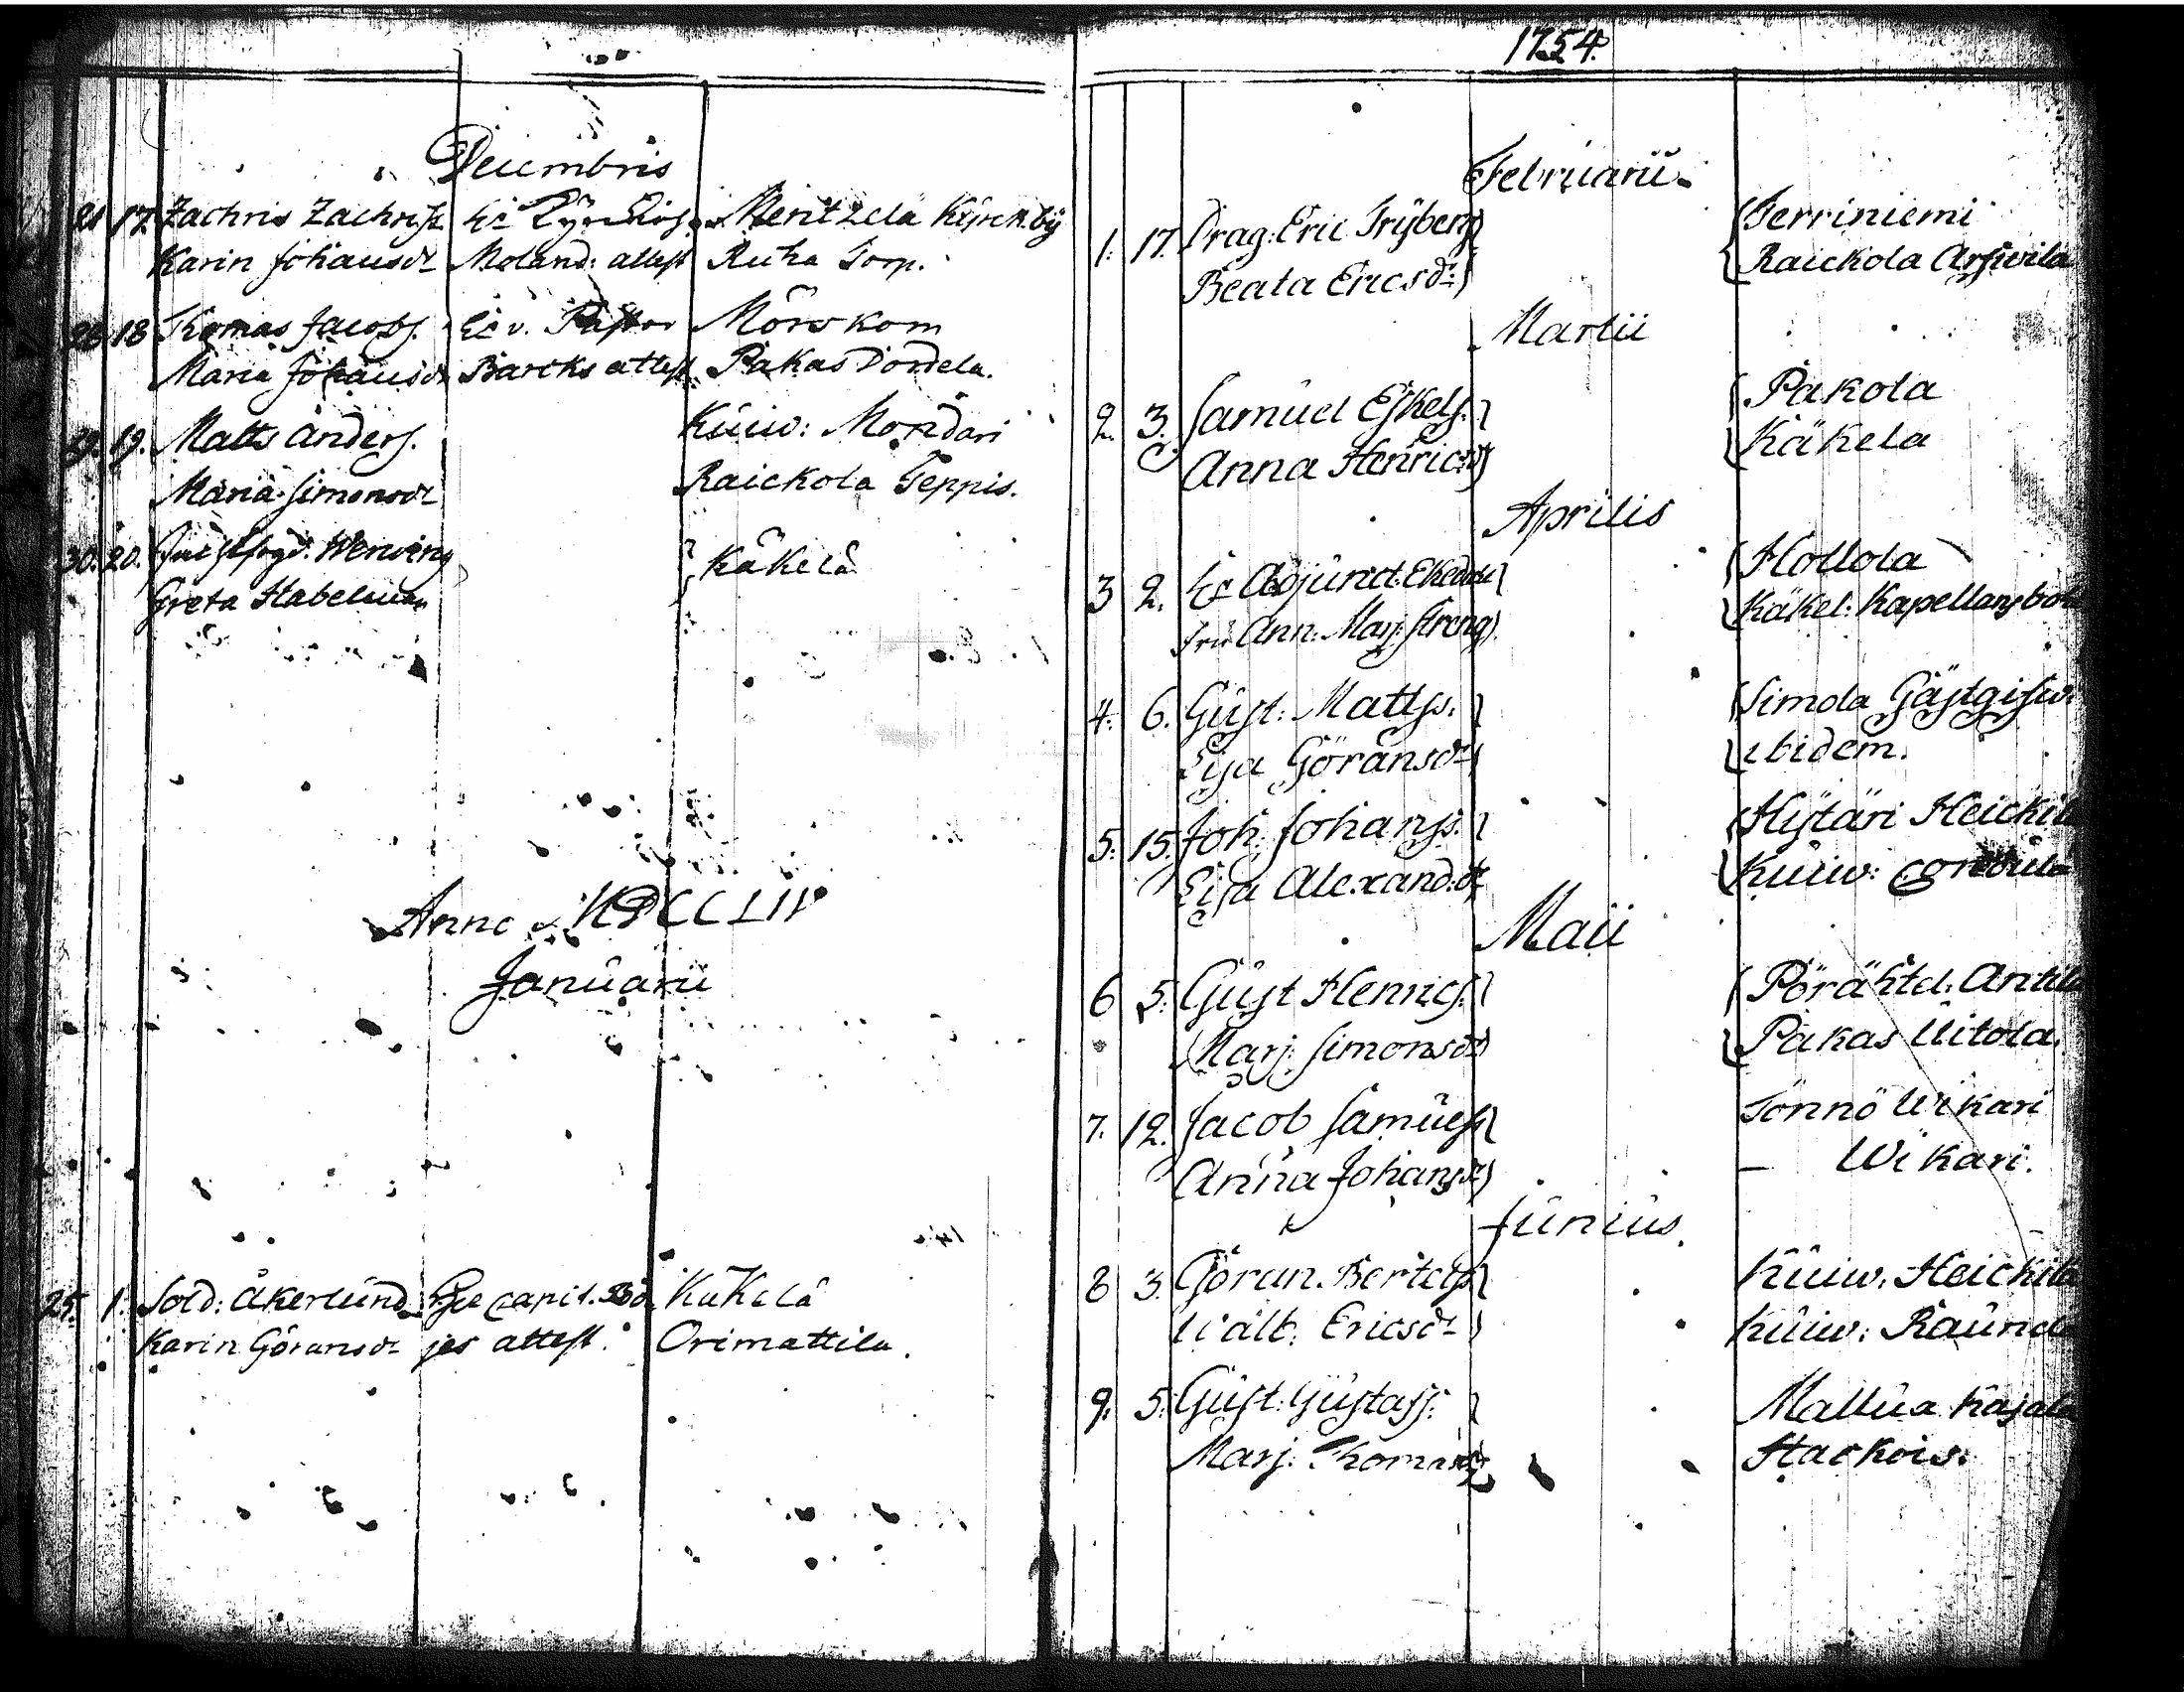 Decembris
21 17. Zachris Zachriss. Mentzelä Kyrck. by
Karin Johansdr Moland: attest Ruha Torp.
26 18 Thomas Jacobs. Pastor Mörskom
Maria Johansdr Barcks attest. Pakas Dordela.
29. 19. Matts Anders. Kuiw: Mondari
Maria Simonsdr Raickola Teppis.
30. 20. Käkelä
Greta Habelman
Anno MDCCLIV
Januarii
25. 1. Sold: Åkerlund capit. Käkelä
Karin Göransdr jes attest. Orimattila.
1754.
Februarii
1. 17. Drag: Eric Fryberg Terriniemi
Beata Ericsdr: Raickola Arfwila
Martii
2. 3. Samuel Eskels. Pakola
Anna Henricsdr Käkela
Aprilis
3 2. Hr Adjunct. Hollola
Ann: Marj: Käkel: Kapellansbol
4. 6. Gust: Mattss. Simola Gästgifw.
Lisa Göransdr ibidem.
5. 15. Joh: Johanss. Hÿtäri Heickilä
Lisa Alexand:dr Kuiw:
Maii
6 5. Gust Henrics. Pörähtel: Anttila
Marj: Simonsdr Pakas Uitola.
7. 12. Jacob Samuels Tönnö Wikari
Anna Johansdr — Wikari.
Junius.
8 3. Göran Bertels Kuiw: Heickilä
Walb: Ericsdr Kuiw: Raunela
9. 5. Gust: Gustafs. Mallua Kajala
Marj: Thomasdr Stackois.